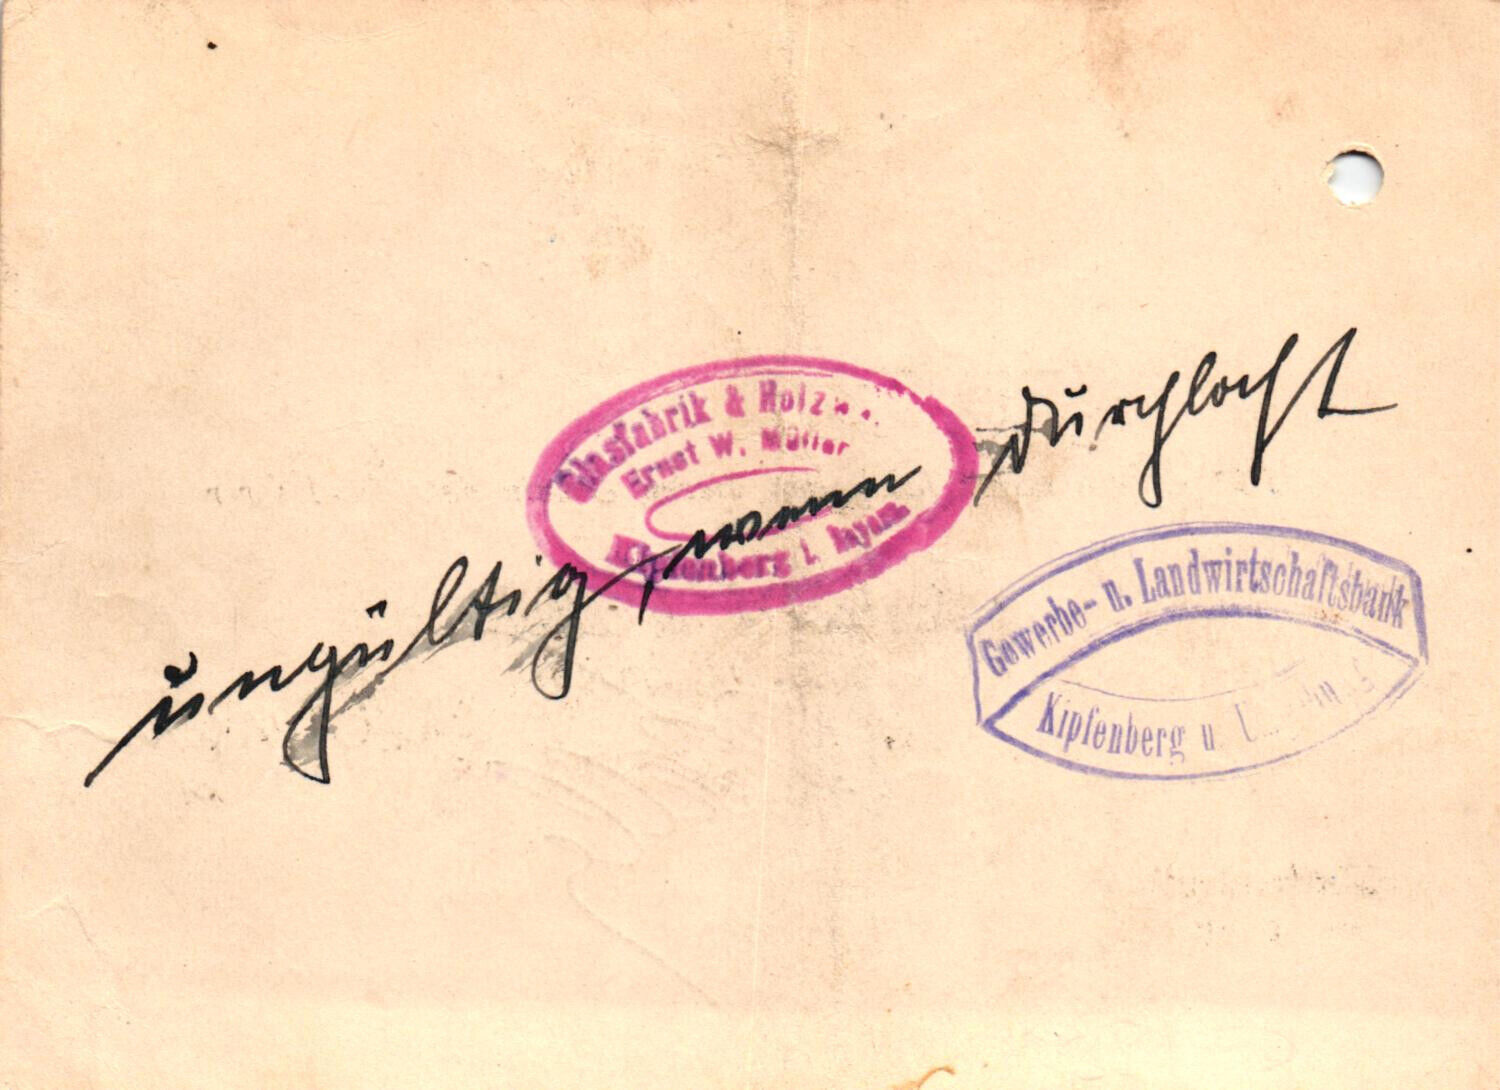 Glasfabrik & Holzw
Ernst W. Müller
Kipfenberg i. Bayern
ungültig, wenn durchlocht
Gewerbe- u. Landwirtschaftsbank
Kipfenberg u